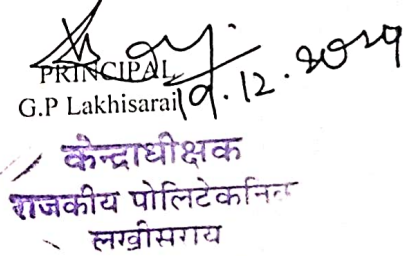 PRINCIPAL
G.P Lakhisarai
केन्द्राधीक्षक
राजकीय पोलिटेकनिक
लखीसराय